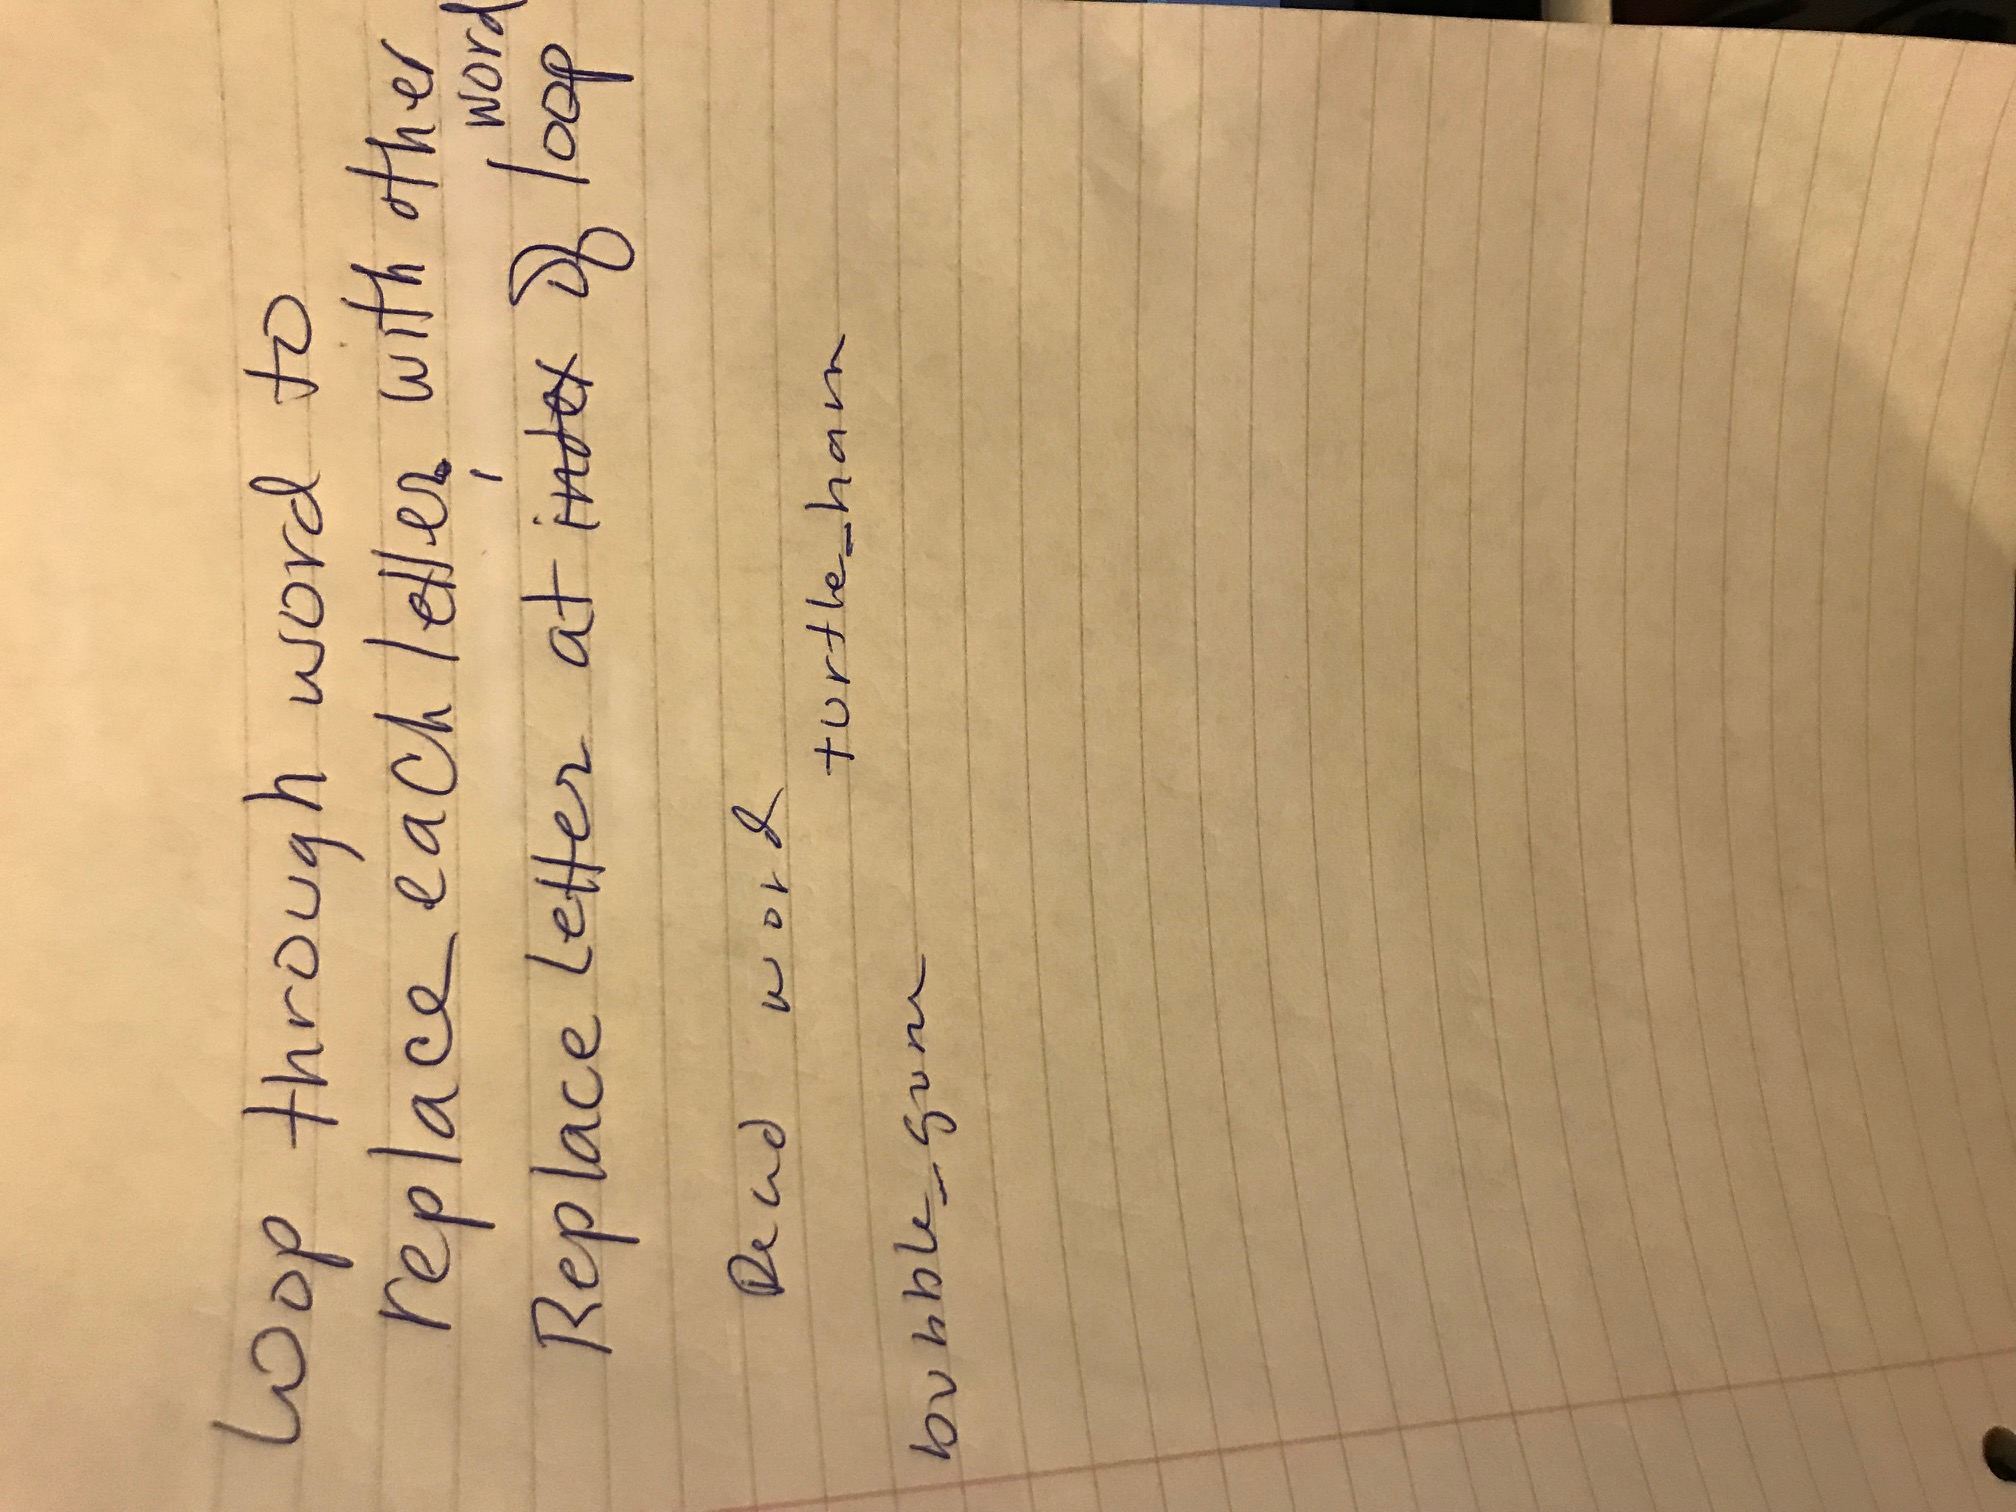 Loop through word to
replace each letter with other
word
Replace Letter at index of loop
Read word
turtle_ham
bubble_gum